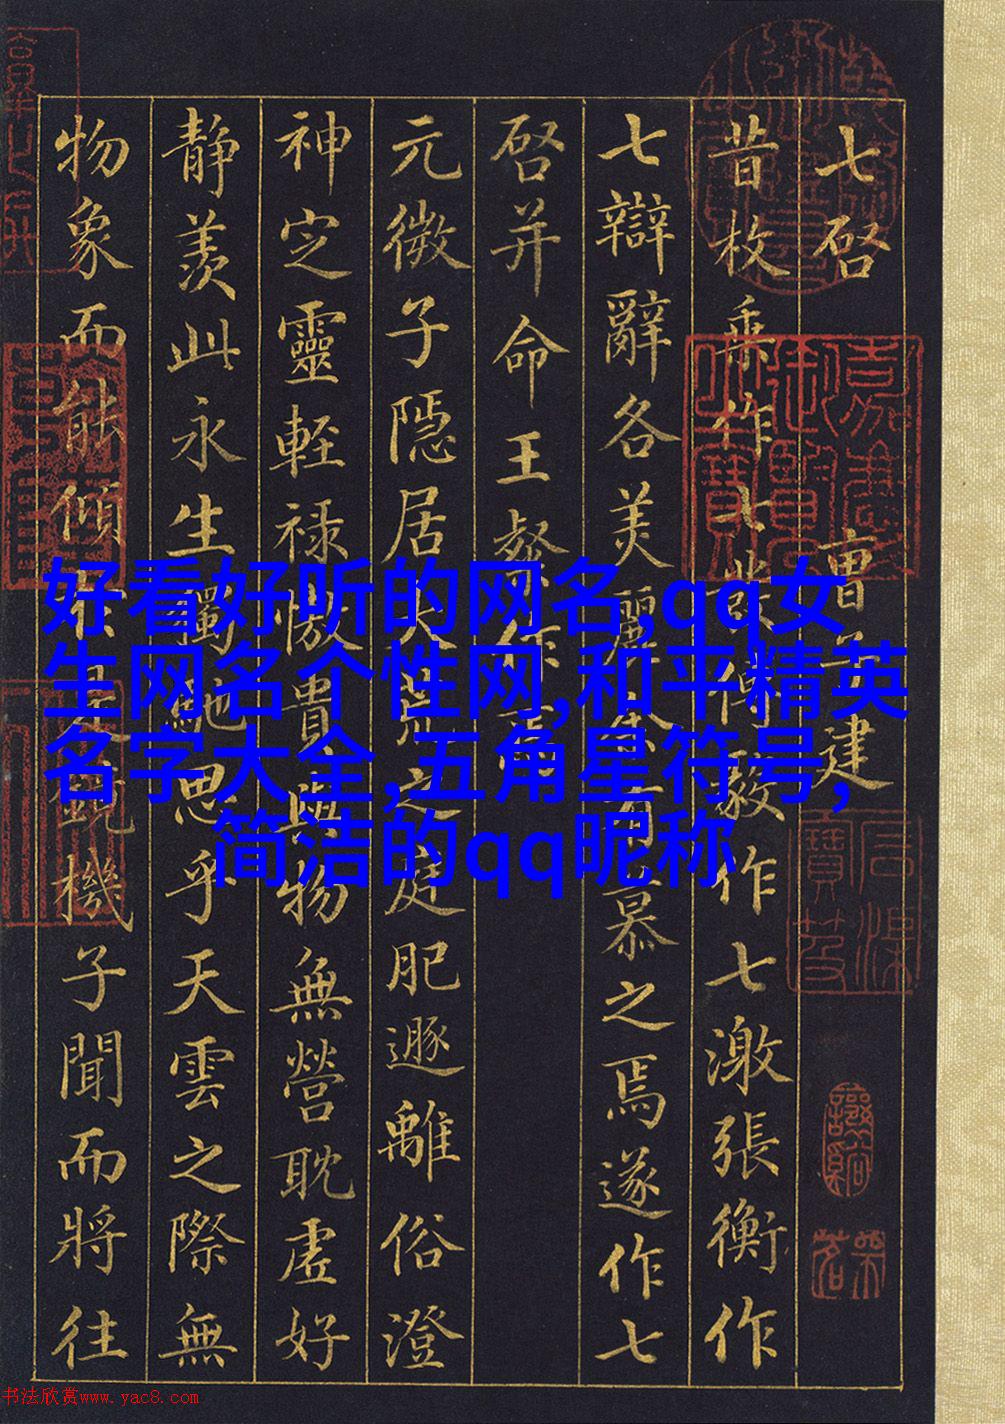 七啓 曹子建
昔枚乘作七發傅毅作七激張衡作
七辯辭各美麗余有慕之焉遂作七
啓并命王粲作焉
元微子隱居大荒之庭肥遯離俗澄
神定靈輕祿傲貴與物無營耽虛好
靜羨此永生獨馳思乎天雲之際無
物象而能傾於是鏡機子聞而將往
嘉慶御覽之寶
好看好听的网名,qq女
生网名个性网,和平精英
名字大全,五角星符号,
简洁的qq昵称
书法欣赏www.yac8.com